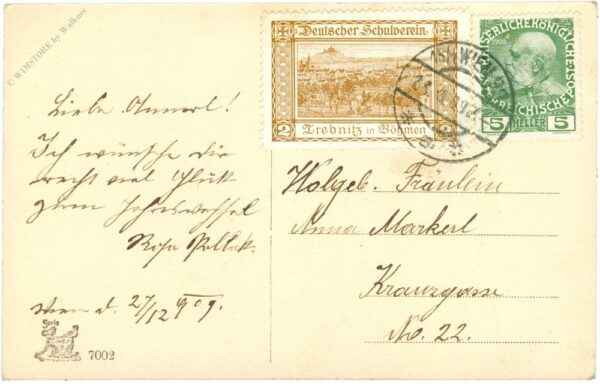 © WIMSTORE by Walkner
Deutscher Schulverein.
2 Trebnitz in Böhmen
KAISERLICHE KÖNIGLICHE
1908
ÖSTERREICHISCHE POST
5 HELLER 5
Liebe Annerl!
Ich wünsche dir
recht viel Glück
zum Jahreswechsel
Rosa Pollak.
Wien d. 27/12 909.
Serie
7002
Wolgeb. Fräulein
Anna Markerl
Kranzgasse
No. 22.